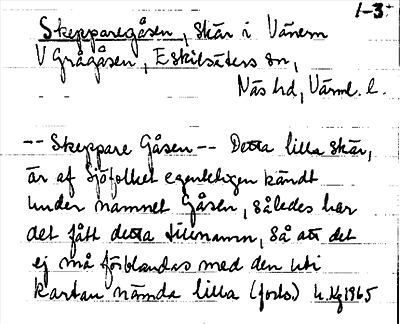 1-3
Skepparegåsen, skär i Vänern
V Grågåsen, Eskilsäters sn,
Näs hd, Värml. l.
-- Skeppare Gåsen -- Detta lilla skär,
är af Sjöfolket egenteligen kändt
under namnet Gåsen, således har
det fått detta tillnamn, så att det
ej må förblandas med den uti
kartan nämda lilla (forts)